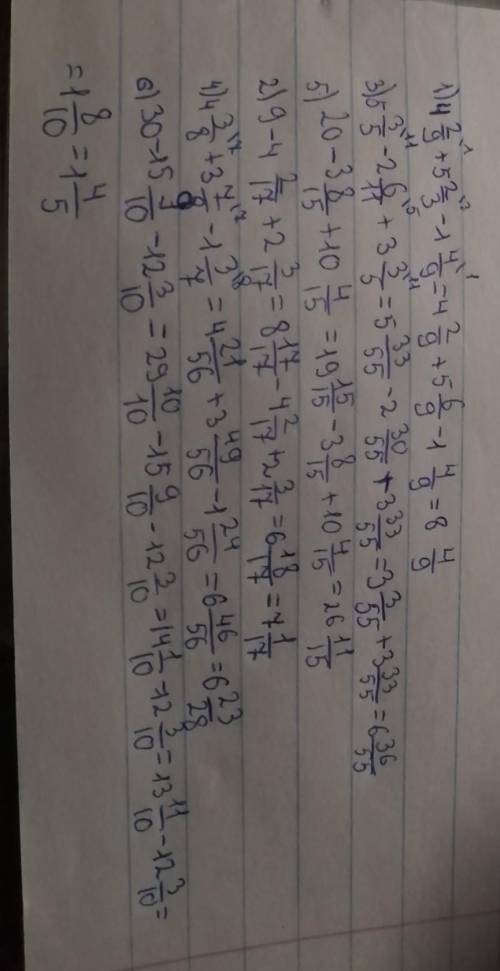 1) 4 2/9 + 5 2/3 - 1 4/9 = 4 2/9 + 5 6/9 - 1 4/9 = 8 4/9
3) 5 3/5 - 2 6/11 + 3 3/5 = 5 33/55 - 2 30/55 + 3 33/55 = 3 3/55 + 3 33/55 = 6 36/55
5) 20 - 3 8/15 + 10 4/15 = 19 15/15 - 3 8/15 + 10 4/15 = 26 11/15
2) 9 - 4 2/17 + 2 3/17 = 8 17/17 - 4 2/17 + 2 3/17 = 6 18/17 = 7 1/17
4) 4 3/8 + 3 7/8 - 1 3/7 = 4 21/56 + 3 49/56 - 1 24/56 = 6 46/56 = 6 23/28
6) 30 - 15 9/10 - 12 3/10 = 29 10/10 - 15 9/10 - 12 3/10 = 14 1/10 - 12 3/10 = 13 11/10 - 12 3/10 =
= 1 8/10 = 1 4/5